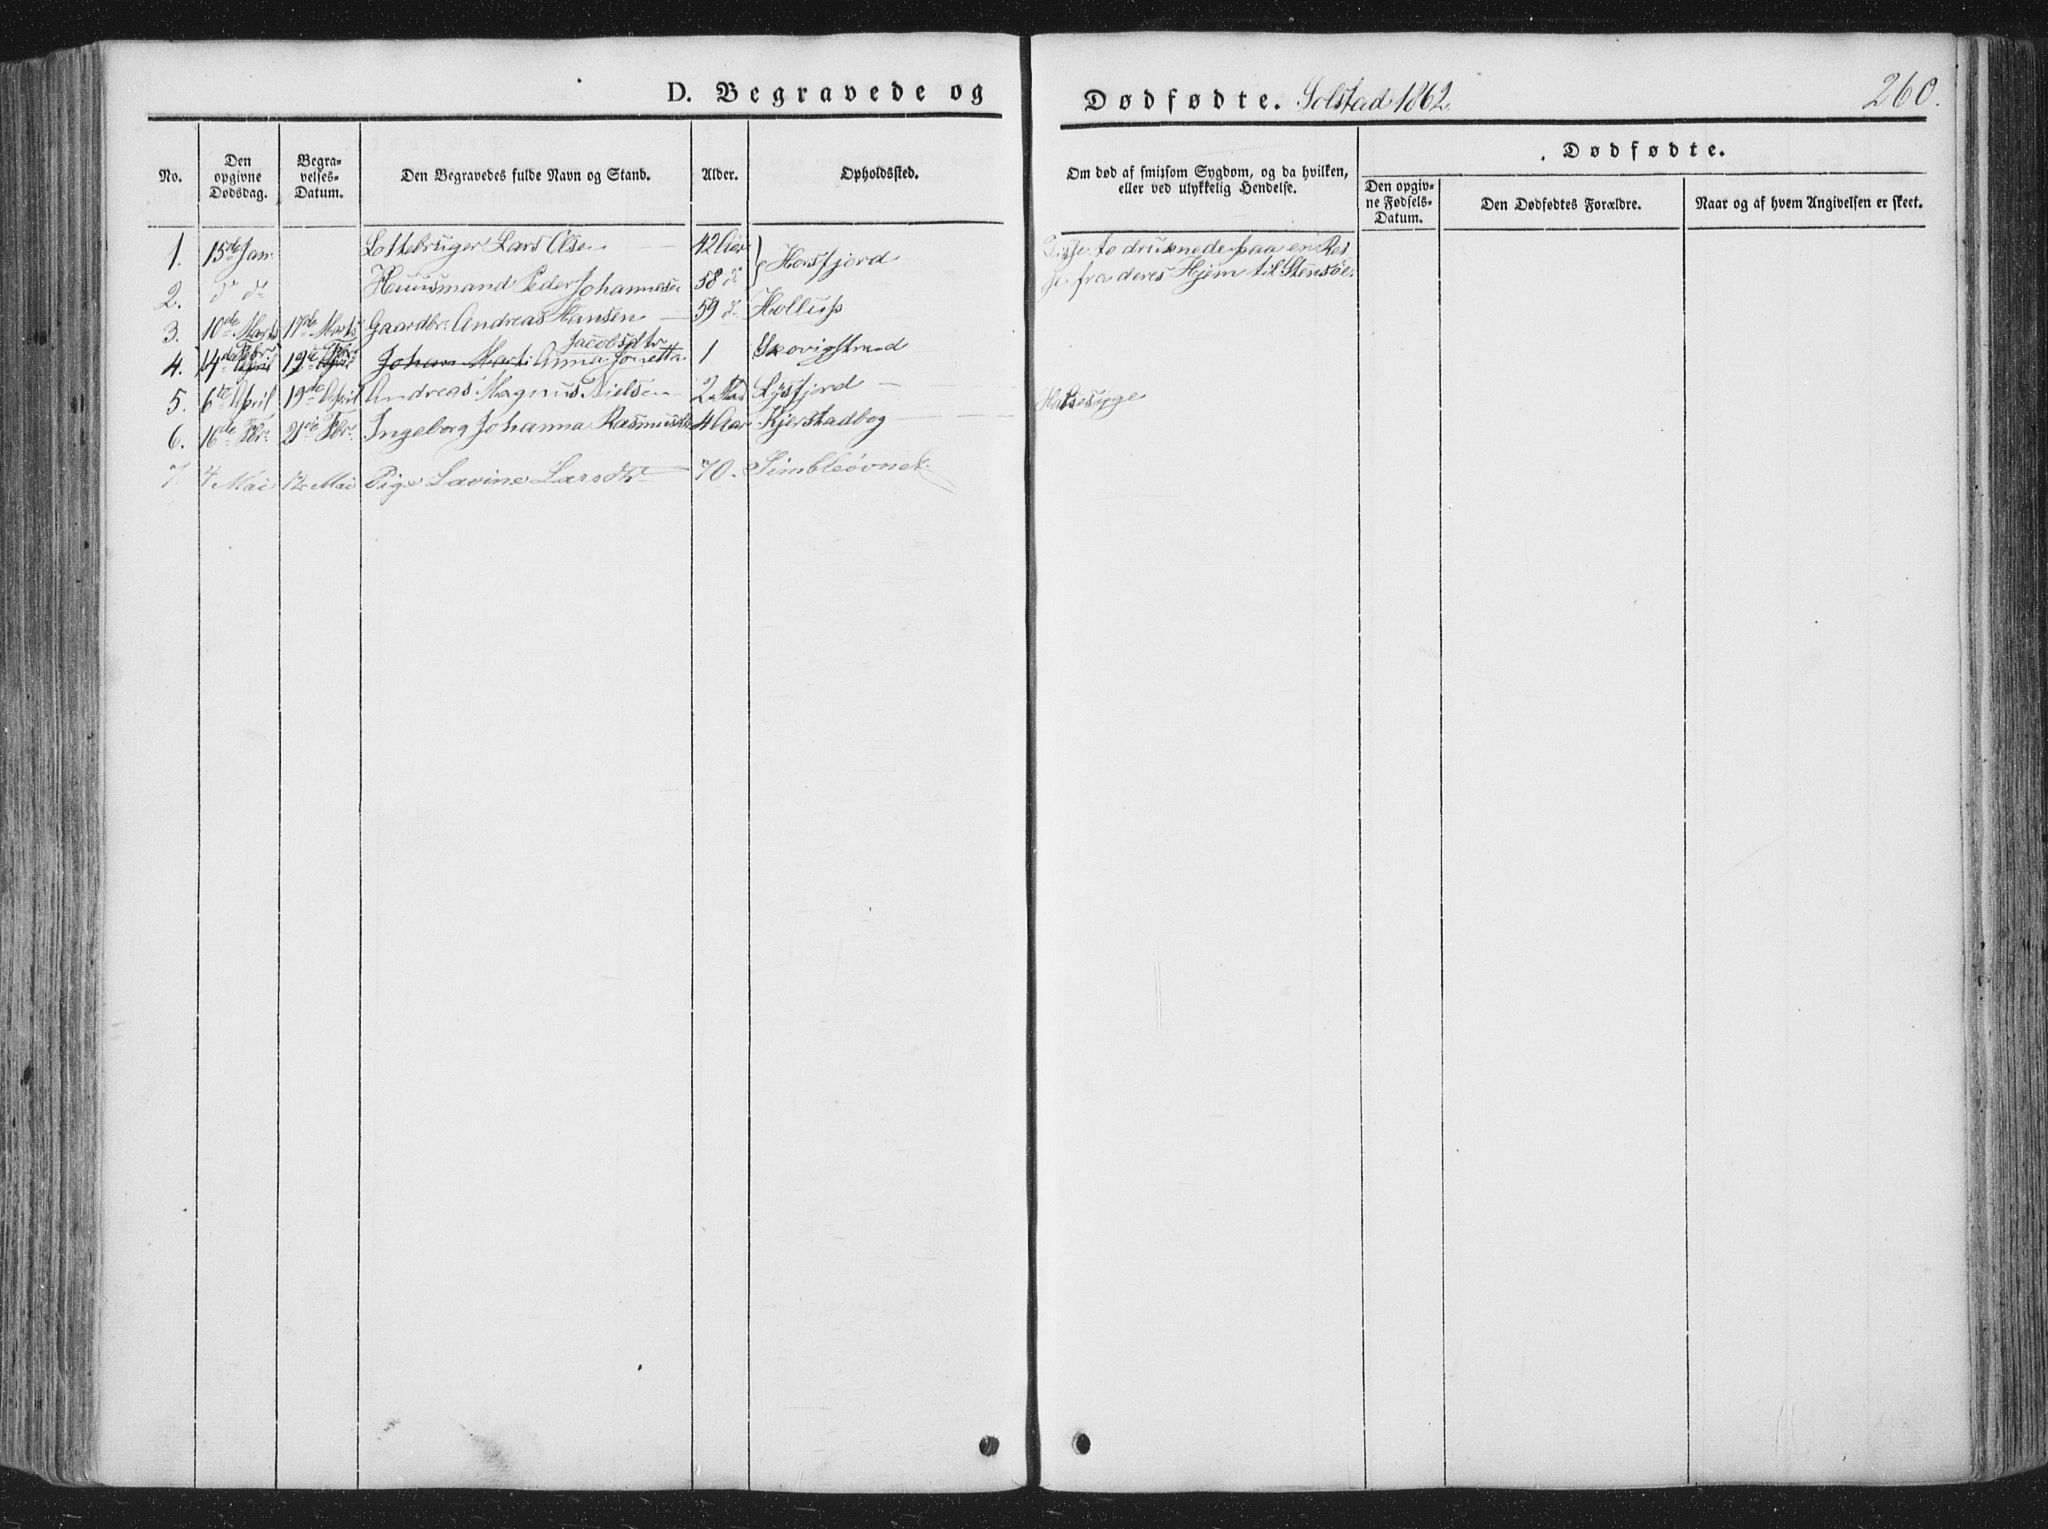 D. Begravede og Dødfødte. Solstad 1862
260.
No. Den opgivne Dødsdag. Begravelses-Datum. Den Begravedes fulde Navn og Stand. Alder. Opholdssted. Om død af smitsom Sygdom, og da hvilken, eller ved ulykkelig Hendelse.
Dødfødte.
Den opgivne Fødsels-Datum. Den Dødfødtes Forældre. Naar og af hvem Angivelsen er skeet.
1. 15de Jan. Lottebruger Lars Olsen 42 Aar Horsfjord Disse to druknede paa en Rei-
2. do do Huusmand Peder Johannesen 58 do se fra deres Hjem til Stensøe
3. 10de Marts 17de Marts Gaardbr: Andreas Hansen 59 do Hollup
Jacobsdtr
4. 14de Febr. 19de Febr. Johan Marti Anna Jonetta 1 Skovigstrand
5. 6te April 19de April Andreas Magnus Nielsen 2 Lysfjord
6. 16de Febr. 21de Febr. Ingeborg Johanna Rasmusdtr 4 Aar Kjerstadbog Halsesyge
7 4 Mai 12 Mai Pige Lavine Larsdtr 70. Simbleøvnek